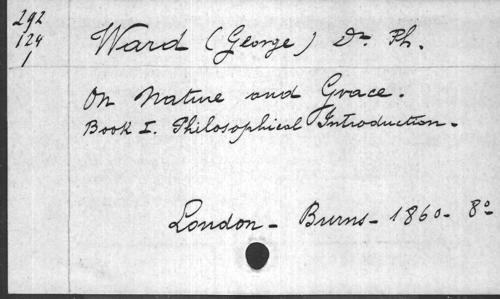 292
124
1
Ward (George) Dr. Ph.
On Nature and Grace.
Book I. Philosophical Introduction -
London - Burns - 1860 - 8o